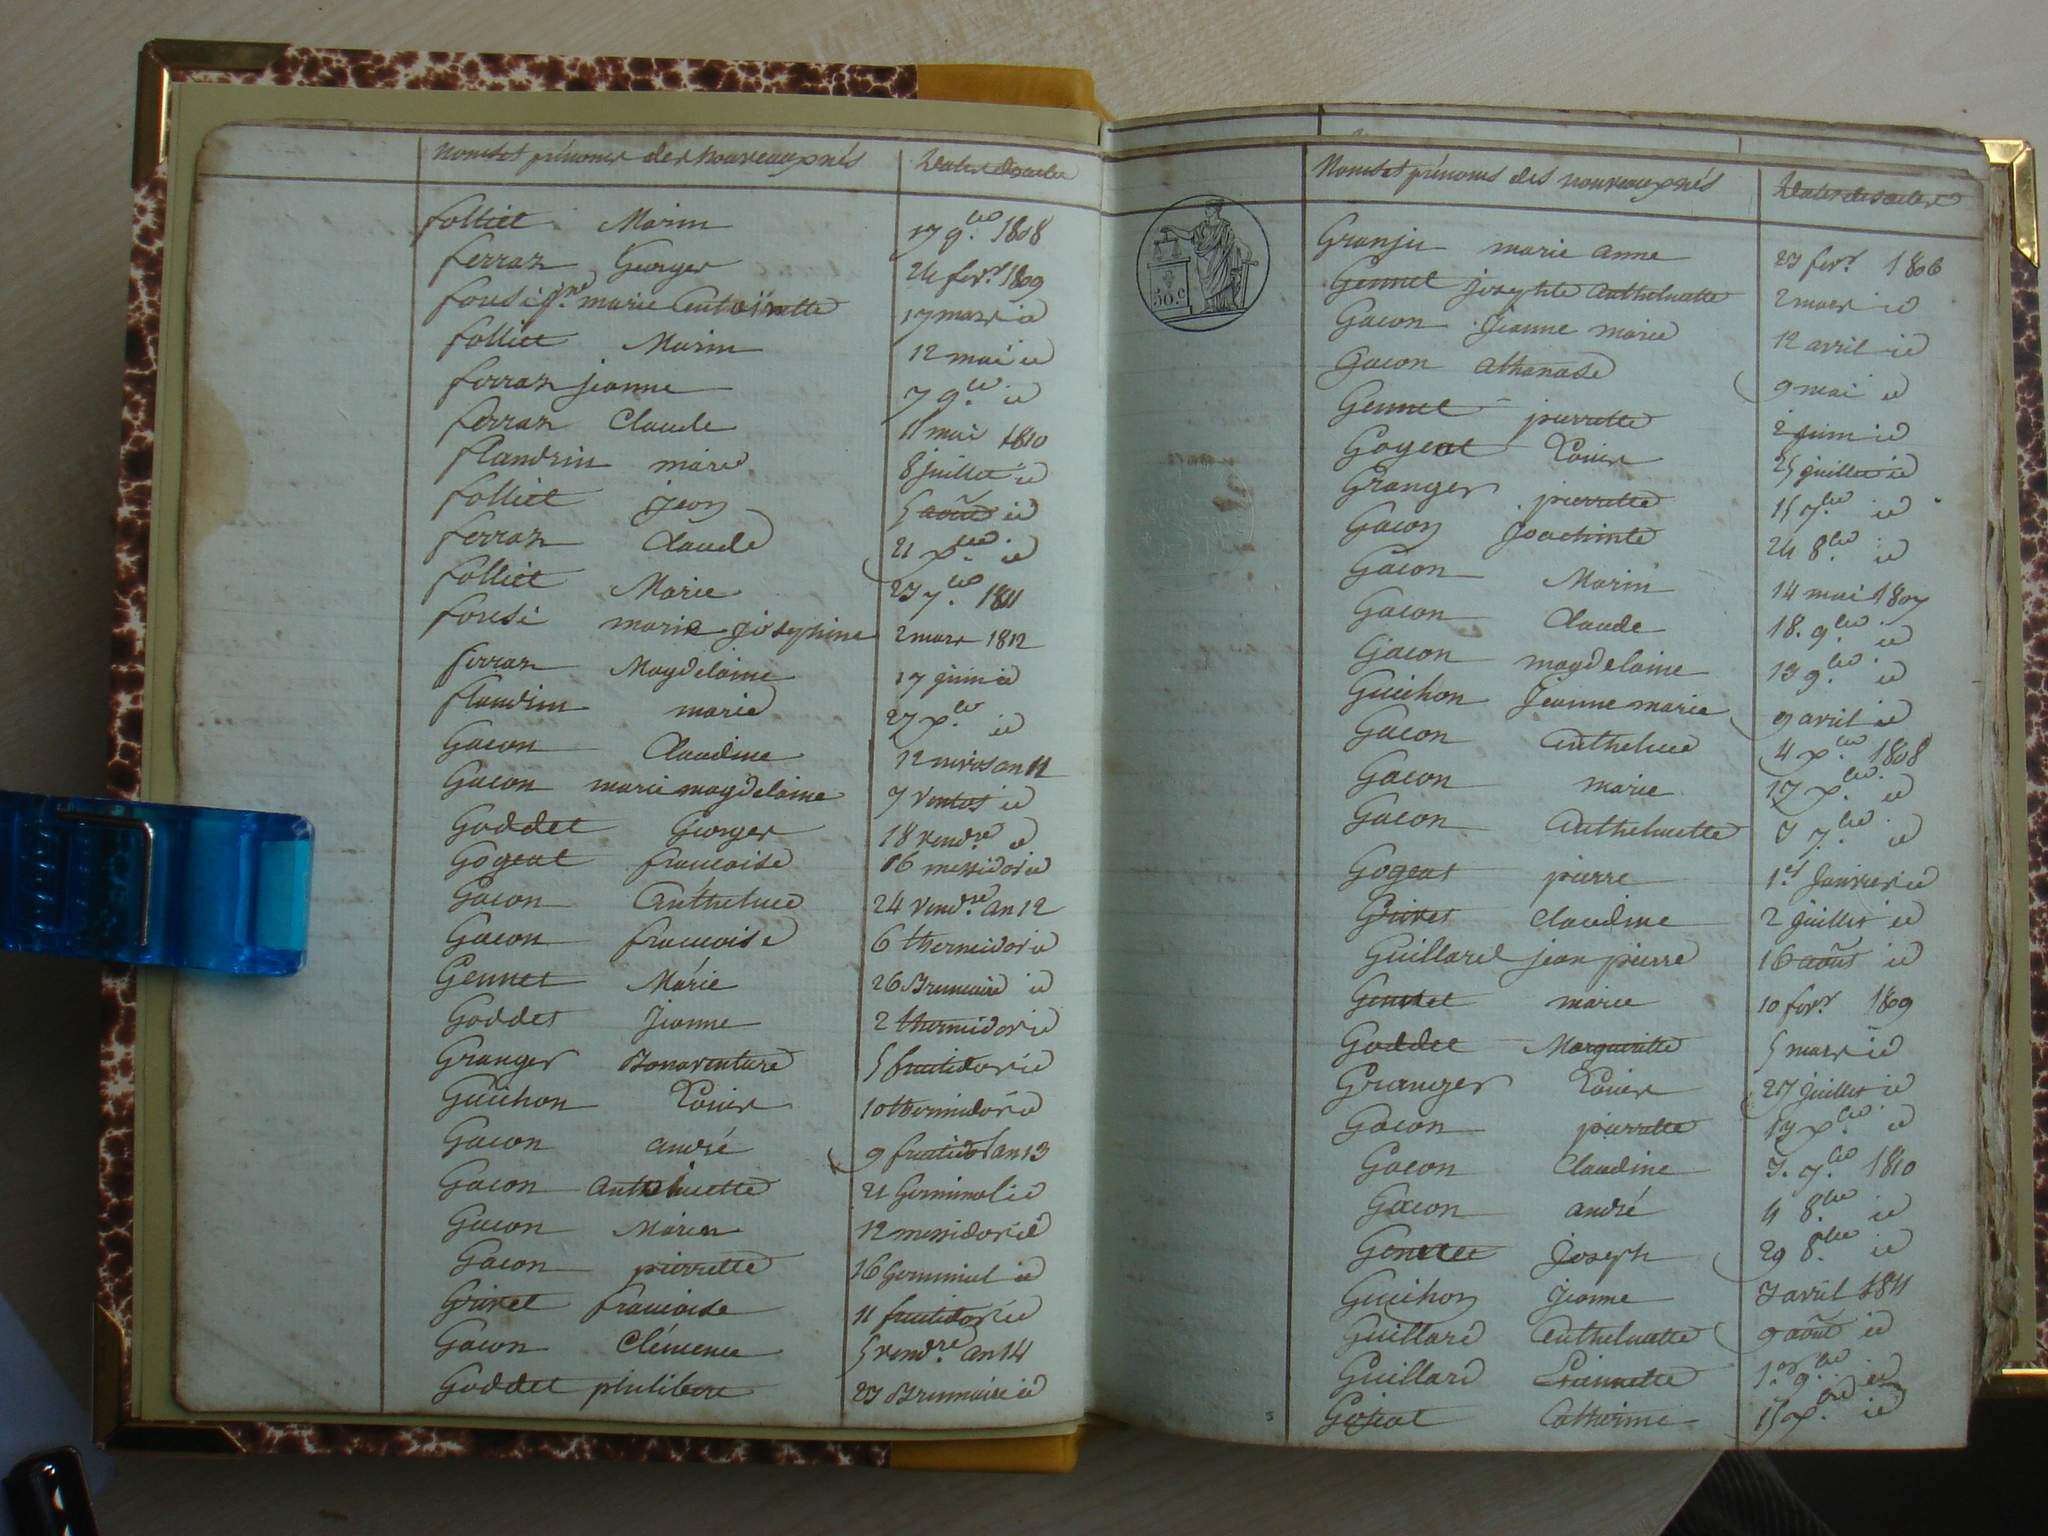 Noms et prénoms des nouveaux nés Dates des actes
folliet Marin 17 9.bre 1808
ferraz Georges 24 fevr. 1809
fousi marie Antoinette 17 mars id
folliet Marin 12 mai id
ferraz jeanne 7 9.bre id
ferraz Claude 11 mai 1810
flandrin marie 8 juillet id
folliet jean 5 août id
ferraz Claude 21 x.bre id
folliet Marie 23 7.bre 1811
fousi marie joséphine 2 mars 1812
ferraz Magdelaine 17 juin id
flandrin marie 27 x.bre id
Gacon Claudine 12 nivos an 11
Gacon marie magdelaine 7 ventos id
Goddet Georges 18 vend.re id
Gogeat francoise 16 messidor id
Gacon Anthelme 24 vend.re an 12
Gacon francoise 6 thermidor id
Gennet Marie 26 Brumaire id
Goddet Jeanne 2 thermidor id
Granger Bonaventure 5 fructidor id
Guichon Louis 10 thermidor id
Gacon andré 9 fructidor an 13
Gacon Anthelmette 21 Germinal id
Gacon Marin 12 messidor id
Gacon pierrette 16 Germinal id
Grivet francoise 11 fructidor id
Gacon Clémence 5 vend.re an 14
Goddet philibert 23 Brumaire id
50.c
Noms et prénoms des nouveaux nés Dates des actes
Granju marie anne 23 fevr. 1806
Gennet josephte Anthelmette 2 mars id
Gacon Jeanne marie 12 avril id
Gacon athanase 9 mai id
Gennet pierrette 2 juin id
Gogeat Louis 25 juillet id
Granger pierrette 15 7.bre id
Gacon Joachinte 24 8.bre id
Gacon Marin 14 mai 1807
Gacon Claude 18. 9.bre id
Gacon magdelaine 13 9.bre id
Guichon Jeanne marie 9 avril id
Gacon Anthelme 4 x.bre 1808
Gacon marie 17 x.bre id
Gacon Anthelmette 7 7.bre id
Gogeat pierre 1.er Janvier id
Grivet Claudine 2 juillet id
Guillard jean pierre 16 août id
Gennet marie 10 fevr. 1809
Goddet Marguerite 5 mars id
Granger Louis 27 juillet id
Gacon pierrette 19 x.bre id
Gacon Claudine 3. 7.bre 1810
Gacon andré 4 8.bre id
Gennet Joseph 29 8.bre id
Guichon Jeanne 7 avril 1811
Guillard Anthelmette 9 août id
Guillard Etiennette 1.er 9.bre id
Catherine 15 x.bre id